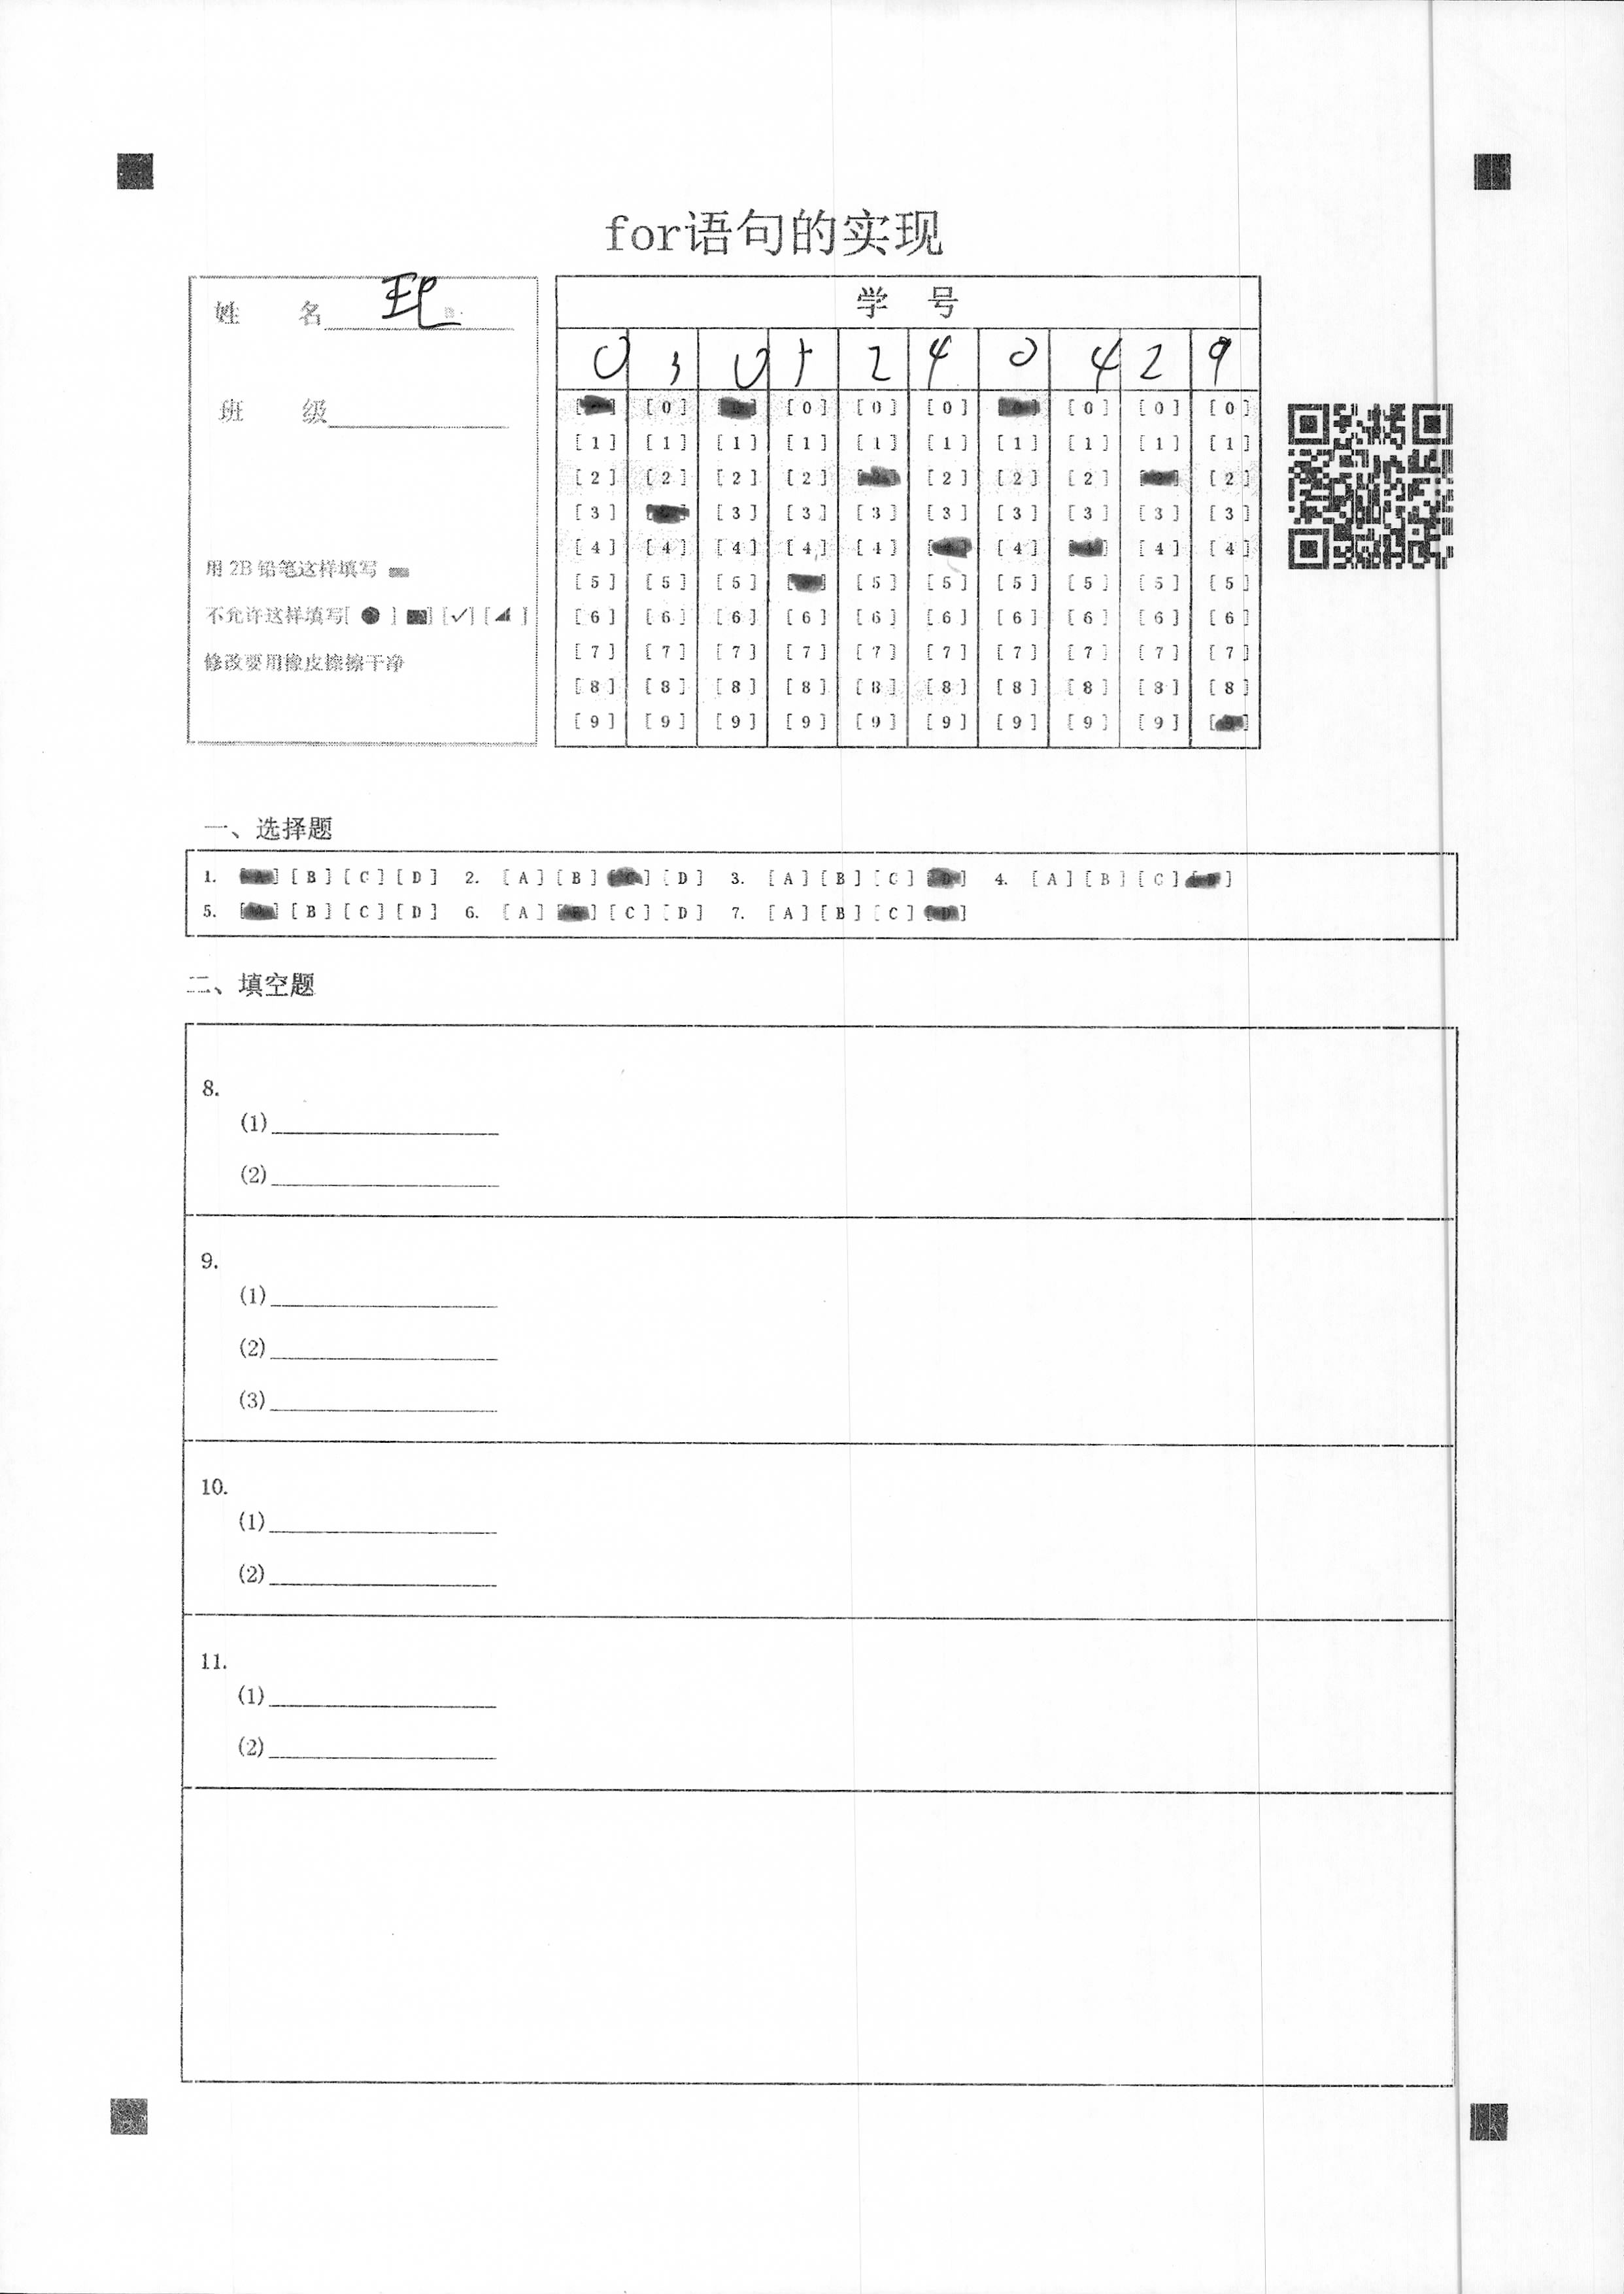 for语句的实现
姓 名
班 级
用 2B 铅笔这样填写
不允许这样填写[ ● ] ■] [✓] [◢ ]
修改要用橡皮擦擦干净
学 号
0 3 0 5 2 4 0 4 2 9
[0] [0] [0] [0] [0] [0] [0]
[1] [1] [1] [1] [1] [1] [1] [1] [1] [1]
[2] [2] [2] [2] [2] [2] [2] [2]
[3] [3] [3] [3] [3] [3] [3] [3] [3]
[4] [4] [4] [4] [4] [4] [4] [4]
[5] [5] [5] [5] [5] [5] [5] [5] [5]
[6] [6] [6] [6] [6] [6] [6] [6] [6] [6]
[7] [7] [7] [7] [7] [7] [7] [7] [7] [7]
[8] [8] [8] [8] [8] [8] [8] [8] [8] [8]
[9] [9] [9] [9] [9] [9] [9] [9] [9] [9]
一、选择题
1. [A] [B] [C] [D] 2. [A] [B] [C] [D] 3. [A] [B] [C] [D] 4. [A] [B] [C] [D]
5. [A] [B] [C] [D] 6. [A] [B] [C] [D] 7. [A] [B] [C] [D]
二、填空题
8.
(1)
(2)
9.
(1)
(2)
(3)
10.
(1)
(2)
11.
(1)
(2)